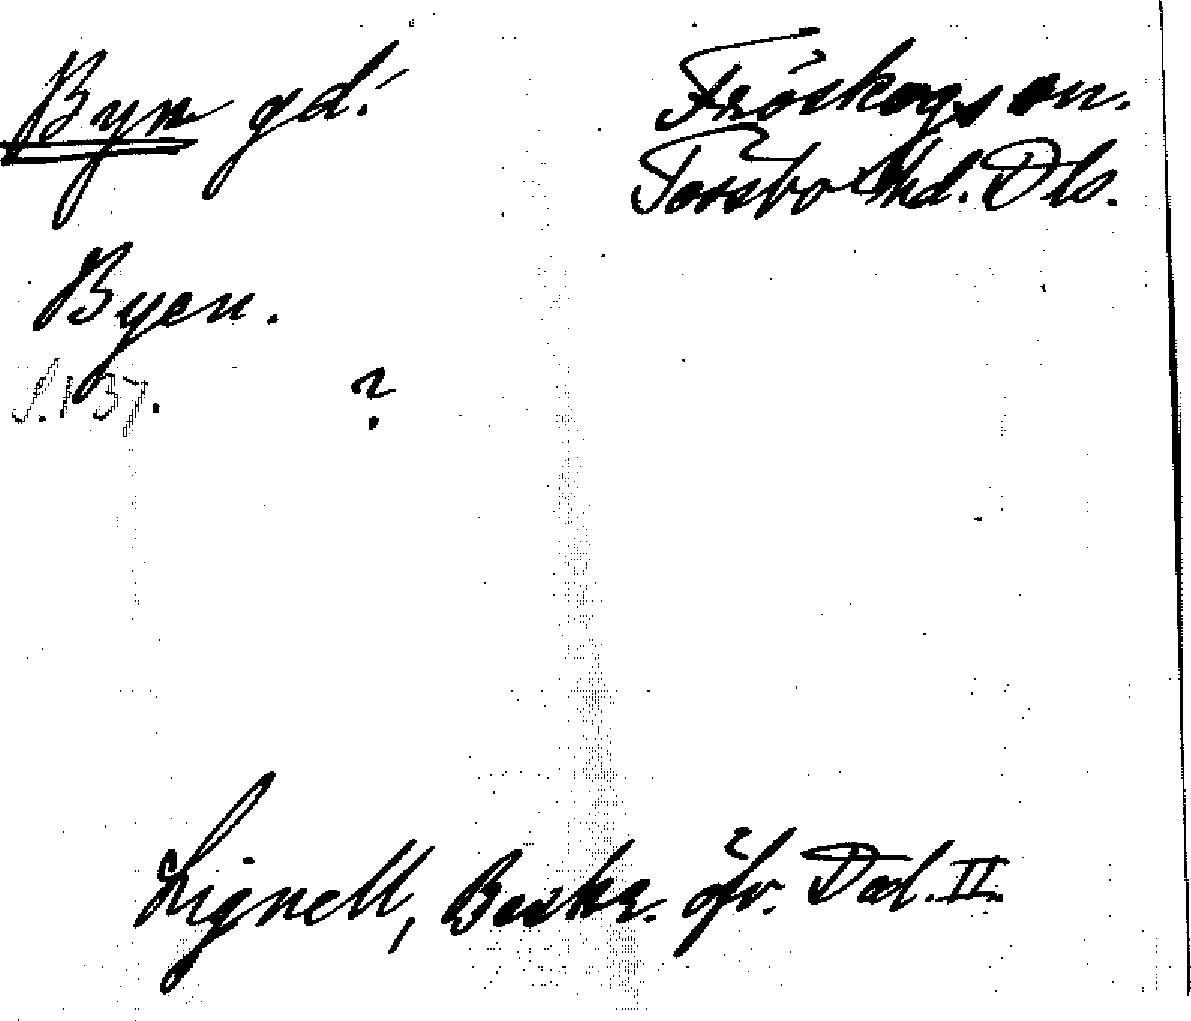 Byn gd.
Fröskogs sn.
Tössbo hd. Dls.
Byen.
S. 137. ?
Lignell, Beskr. öfv. Dal. II.